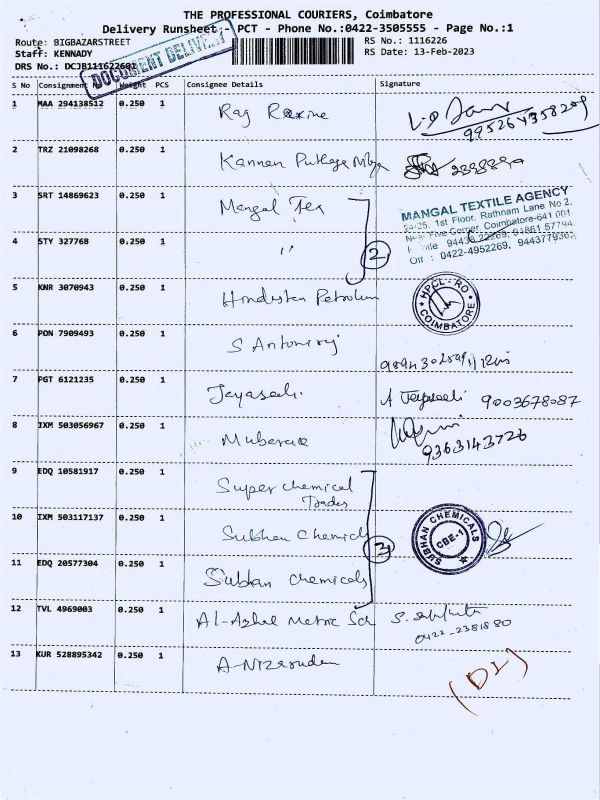 THE PROFESSIONAL COURIERS, Coimbatore
Delivery Runsheet - PCT - Phone No.:0422-3505555 - Page No.:1
Route: BIGBAZARSTREET RS No.: 1116226
Staff: KENNADY RS Date: 13-Feb-2023
DRS No.: DCJB111622601
DOCUMENT DELIVERY
S No Consignment Weight PCS Consignee Details Signature
1 MAA 294138512 0.250 1 Raj Rexine
2 TRZ 21098268 0.250 1 Kannan
3 SRT 14869623 0.250 1 Mangal Tex
MANGAL TEXTILE AGENCY
24/25, 1st Floor, Rathnam Lane No 2,
Five Corner, Coimbatore-641 001.
Off : 0422-4952269, 9443779362
4 STY 327768 0.250 1 "
2
5 KNR 3070943 0.250 1 Hindustan Petroleum
HPCL-RO
COIMBATORE
6 PON 7909493 0.250 1 S Antoniraj
7 PGT 6121235 0.250 1 Jeyaseeli A Jeyaseeli 9003678087
8 IXM 503056967 0.250 1 Mubarac
9363143726
9 EDQ 10581917 0.250 1 Super chemical
Trades
10 IXM 503117137 0.250 1 Subhan Chemicl
3
SUBHAN CHEMICALS
CBE-1
11 EDQ 20577304 0.250 1 Subhan chemicals
12 TVL 4969003 0.250 1 Al-Azhel Metric Sch
0422-2381880
13 KUR 528895342 0.250 1 A-Nizarudeen
(DL)